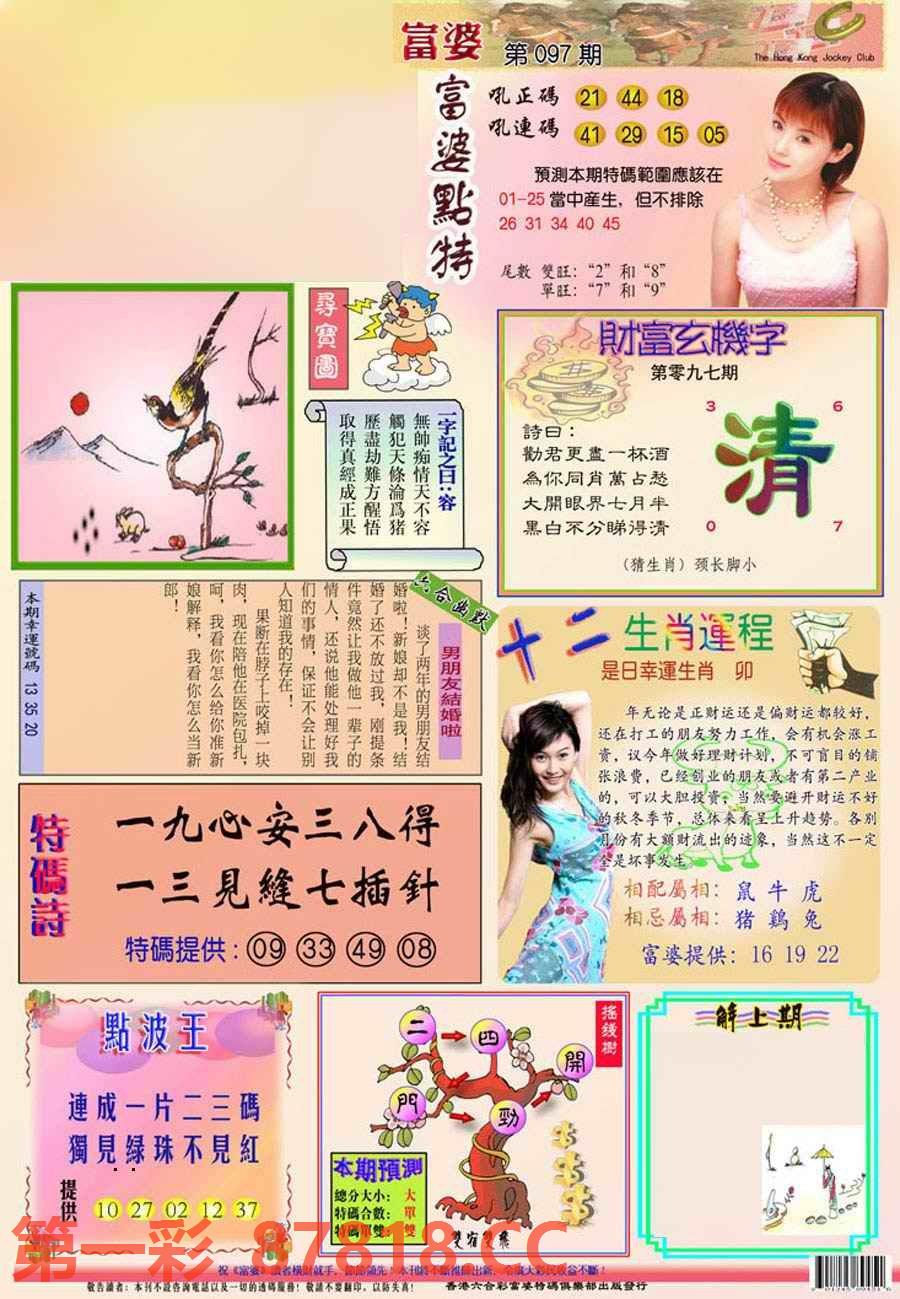 富婆 第 097 期
The Hong Kong Jockey Club
富婆點特
吼正碼 21 44 18
吼連碼 41 29 15 05
預測本期特碼範圍應該在
01-25 當中産生，但不排除
26 31 34 40 45
尾數 雙旺：“2”和“8”
單旺：“7”和“9”
尋寶圖
一字記之曰：容
無師痴情天不容
觸犯天條淪爲豬
歷盡劫難方醒悟
取得真經成正果
財富玄機字
第零九七期
詩曰：
勸君更盡一杯酒
為你同肖萬占愁
大開眼界七月半
黑白不分睇得清
3 6
清
0 7
（猜生肖）颈长脚小
六合幽默
男朋友結婚啦
谈了两年的男朋友结
婚啦！新娘却不是我！结
婚了还不放过我，刚提条
件竟然让我做他一辈子的
情人，还说他能处理好我
们的事情，保证不会让别
人知道我的存在！
果断在脖子上咬掉一块
肉，现在陪他在医院包扎，
呵，我看你怎么给你准新
娘解释，我看你怎么当新
郎！
本期幸運號碼 13 35 20
十二生肖運程
是日幸運生肖 卯
年无论是正财运还是偏财运都较好，
还在打工的朋友努力工作，会有机会涨工
资，议今年做好理财计划，不可盲目的铺
张浪费，已经创业的朋友或者有第二产业
的，可以大胆投资；当然要避开财运不好
的秋冬季节，总体来看呈上升趋势。各别
月份有大额财流出的迹象，当然这不一定
全是坏事发生。
相配屬相：鼠 牛 虎
相忌屬相：猪 鷄 兔
富婆提供：16 19 22
特碼詩
一九心安三八得
一三見縫七插針
特碼提供：09 33 49 08
點波王
連成一片二三碼
獨見绿珠不見紅
提供 10 27 02 12 37
搖錢樹
二 四 開
門 勁
本期預測
總分大小：大
特碼合數：單
特碼單雙：雙
雙宿雙飛
解上期
第一彩 87818.CC
祝《富婆》讀者橫財就手，節節領先！
敬告讀者：本刊不設咨詢電話以及一切的透碼服務！敬請不要翻印，以防失真！
香港六合彩富婆特碼俱樂部出版發行